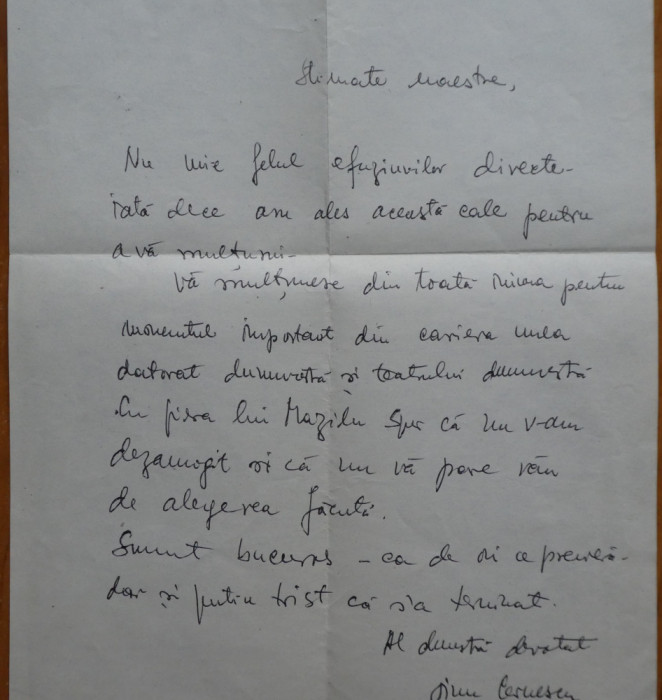 Stimate maestre,
Nu mi-e felul efuziunilor directe-
iată dece am ales această cale pentru
a vă mulțumi-
Vă mulțumesc din toată inima pentru
momentul important din cariera mea
datorat dumvstră și teatrului dumvstră
Cu piesa lui Mazilu Sper că nu v-am
dezamăgit și că nu vă pare rău
de alegerea făcută.
Sunt bucuros - ca de orice premieră-
dar și puțin trist că s-a terminat.
Al dumvstră devotat
Dinu Cernescu